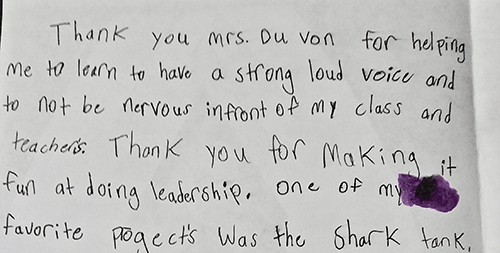 Thank you mrs. Du von for helping
me to learn to have a strong loud voice and
to not be nervous infront of my class and
teachers. Thank you for Making it
fun at doing leadership. One of my
favorite progect's was the shark tank.